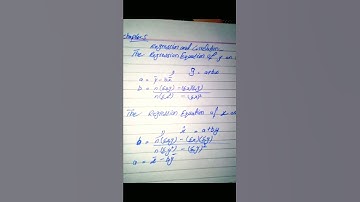 Chapter 5
Regression and Correlation
The Regression Equation of y on
ŷ = a+bx
a = ȳ - bx̄
b = n(Σxy) - (Σx)(Σy)
n(Σx²) - (Σx)²
The Regression Equation of x on
x̂ = a+by
b = n(Σxy) - (Σx)(Σy)
n(Σy²) - (Σy)²
a = x̄ - bȳ